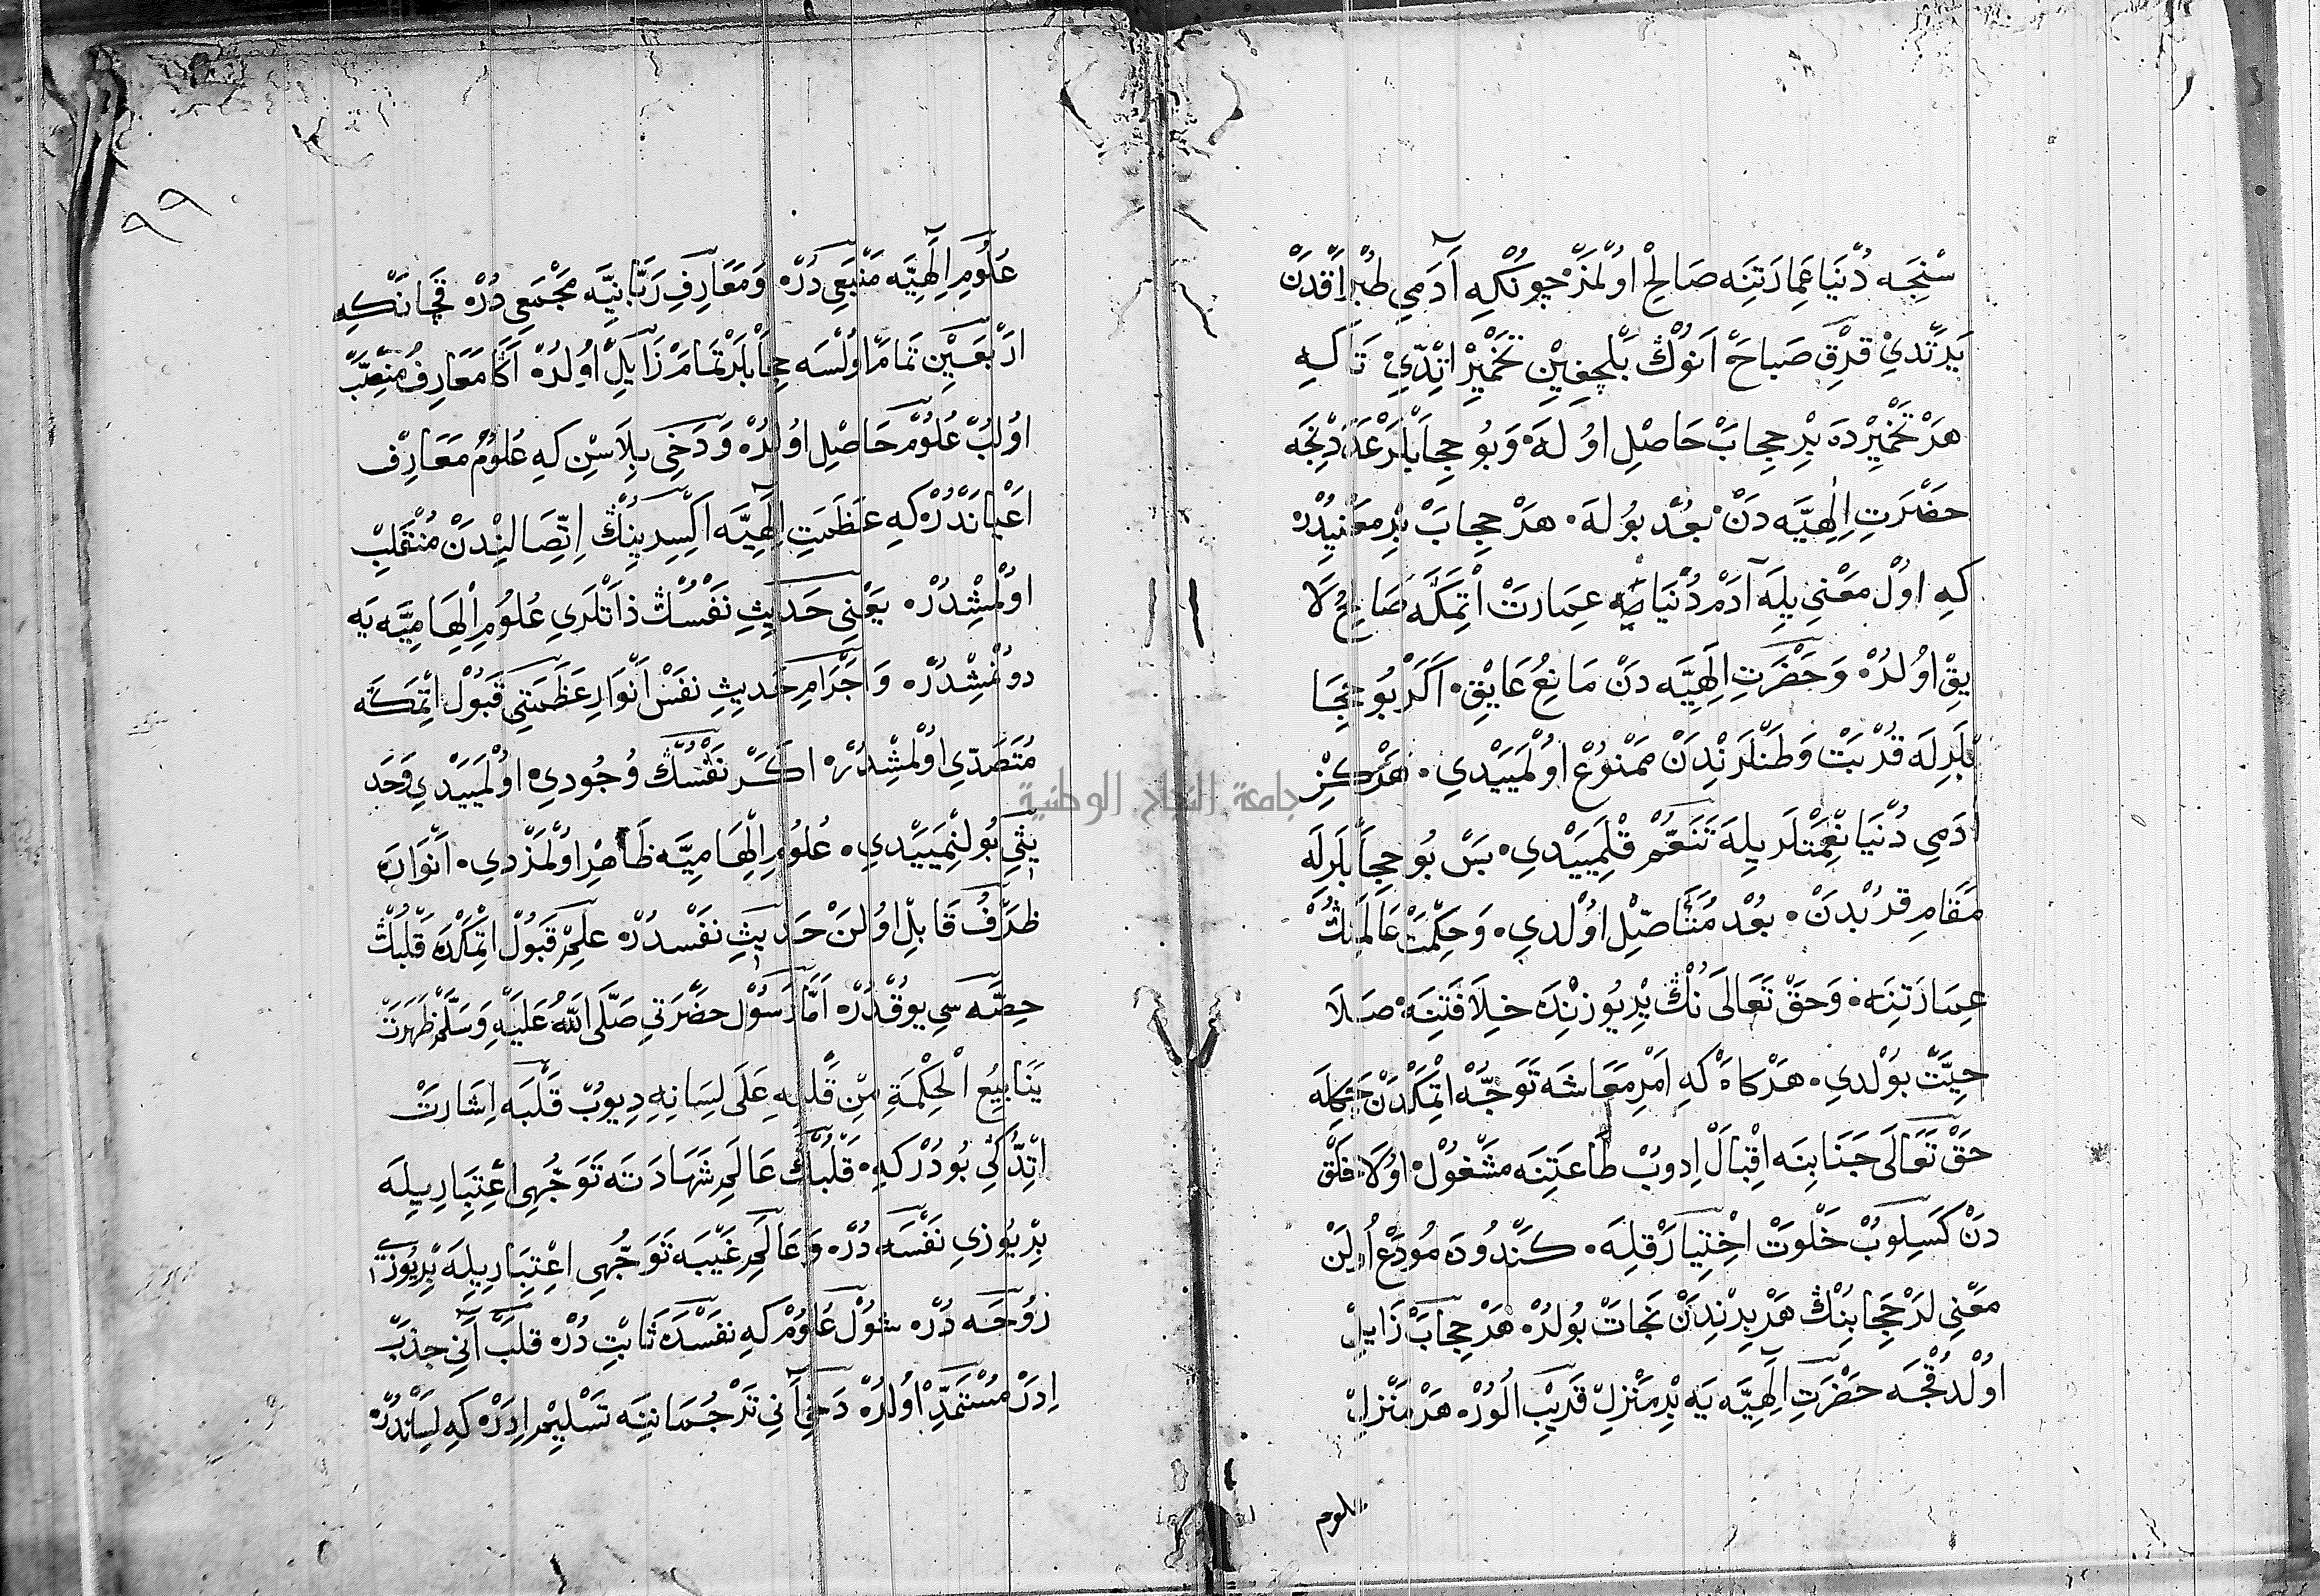 سْنِجَه دُنْيَا عِمَارَتِنَه صَالِحْ اوُلْمَزْ چُونْكِه آدَمِي طُبْرَاقْدَنْ
يَرَتْدِيْ قِرْقْ صَبَاحْ اَنُوكْ بَلْچِغِينْ تَخْمِيرْ اِتْدِيْ تَاكِه
هَرْ تَخْمِيرْدَه بِرْ حِجَابْ حَاصِلْ اوُلَه وَبُو حِجَابْلَرْ عَدَدِنْجَه
حَضْرَتِ اِلٰهِيَّه دَنْ بُعْدْ بُولَه هَرْ حِجَابْ بِرْ مَعْنِيدُرْ
كِه اوُلْ مَعْنِي يِلَه آدَمْ دُنْيَايَه عِمَارَتْ اِتْمَكَه صَالِحْ لَا
يِقْ اوُلُرْ وَحَضْرَتِ اِلٰهِيَّه دَنْ مَانِعْ عَايِقْ اَكَرْ بُو حِجَا
بْلَرِلَه قُرْبَتْ وَطَنْلَرِنْدَنْ مَمْنُوعْ اوُلْمَيَيْدِي هَرْكِزْ
آدَمِي دُنْيَا نِعْمَتْلَرِيلَه تَنَعُّمْ قِلْمَيَيْدِي بَسْ بُو حِجَابْلَرِلَه
مَقَامِ قُرْبْدَنْ بُعْدْ مُتَأَصِّلْ اوُلْدِي وَحِكْمَتْ عَالَمِنُكْ
عِمَارَتِنَه وَحَقْ تَعَالَى نُكْ يِرْ يُوزِنْدَه خِلَافَتِنَه صَلَا
حِيَّتْ بُولْدِي هَرْكَاهْ كِه اَمْرِ مَعَاشَه تَوَجُّهْ اِتْمَكْدَنْ
حَقْ تَعَالَى جَنَابِنَه اِقْبَالْ اِدُوبْ طَاعَتِنَه مَشْغُولْ اوُلَا خَلْقْ
دَنْ كَسِلُوبْ خَلْوَتْ اِخْتِيَارْ قِلَه كَنْدُودَه مُودَعْ اوُلَنْ
مَعْنِي لَرْ حِجَابِنُكْ هَرْ بِرِنْدَنْ نَجَاتْ بُولُرْ هَرْ حِجَابْ زَايِلْ
اوُلْدُقْجَه حَضْرَتِ اِلٰهِيَّه يَه بِرْ مَنْزِلْ قَرِيبْ الُورْ هَرْ مَنْزِلْ
علوم
٩٩
عُلُومِ اِلٰهِيَّه مَنْبَعِي دُرْ وَمَعَارِفِ رَبَّانِيَّه مَجْمَعِي دُرْ قَچَانْكِه
اَرْبَعِينْ تَمَامْ اوُلْسَه حِجَابْلَرْ تَمَامْ زَايِلْ اوُلُرْ اَكَا مَعَارِفْ مُنْصَبْ
اوُلُبْ عُلُومْ حَاصِلْ اوُلُرْ وَدَخِى بِلَاسِنْ كِه عُلُومْ مَعَارِفْ
اَعْيَانْدُرْ كِه عَظَمَتِ اِلٰهِيَّه اِكْسِيرِينِكْ اِتِّصَالِنْدَنْ مُنْقَلِبْ
اوُلْمِشْدُرْ يَعْنِي حَدِيثِ نَفْسُكْ ذَاتْلَرِي عُلُومِ اِلْهَامِيَّه يَه
دُونْمِشْدُرْ وَاَجْرَامِ حَدِيثِ نَفْسْ اَنْوَارِ عَظَمَتِي قَبُولْ اِتْمَكَه
مُتَصَدِّي اوُلْمِشْدُرْ اَكَرْ نَفْسُكْ وُجُودِي اوُلْمَيَيْدِي وَحَد
يثِي بُولُنْمَيَيْدِي عُلُومِ اِلْهَامِيَّه ظَاهِرْ اوُلْمَزْدِي اَنْوَارَه
ظَرْفْ قَابِلْ اوُلَنْ حَدِيثِ نَفْسدُرْ عِلْمِ قَبُولْ اِتْمَكْدَه قَلْبُكْ
حِصَّه سِي يُوقْدُرْ اَمَّا رَسُولْ حَضْرَتِي صَلَّى اللّٰهُ عَلَيْهِ وَسَلَّمْ ظَهَرَتْ
يَنَابِيعُ الْحِكْمَةِ مِنْ قَلْبِهِ عَلَى لِسَانِهِ دِيُوبْ قَلْبَه اِشَارَتْ
اِتْدُكِي بُودُرْ كِه قَلْبُكْ عَالَمِ شَهَادَتَه تَوَجُّهِي اِعْتِبَارِيلَه
بِرْ يُوزِي نَفْسَه دُرْ وَعَالَمِ غَيْبَه تَوَجُّهِي اِعْتِبَارِيلَه بِرْ يُوزِي
رُوحَه دُرْ شُولْ عُلُومْ كِه نَفْسْدَه ثَابِتْ دُرْ قَلْبْ آنِي جَذْبْ
اِدَرْ مُسْتَمِدْ اوُلُرْ دَخِي آنِي تَرْجُمَانِنَه تَسْلِيمْ اِدَرْ كِه لِسَانْدُرْ
جامعة النجاح الوطنية